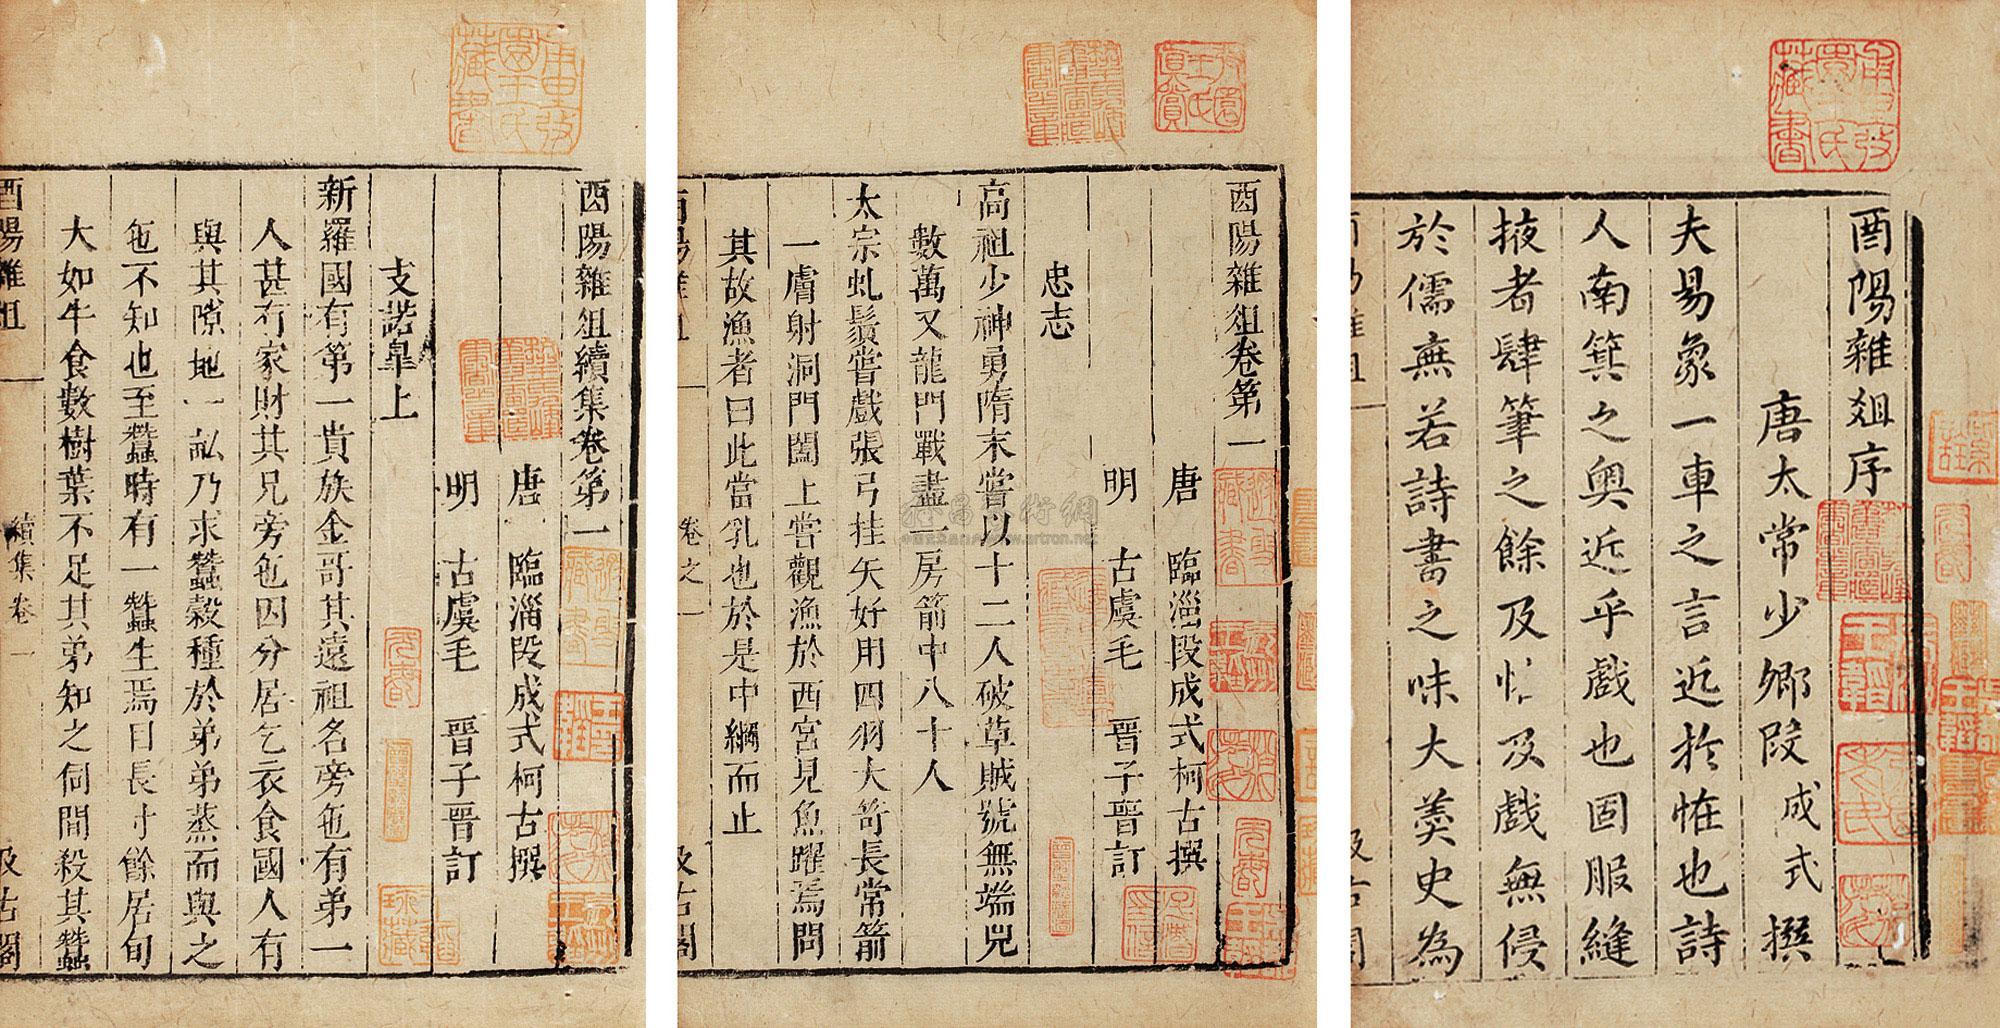 酉陽雜俎序
唐太常少卿段成式撰
夫易象一車之言近於恠也詩
人南箕之奥近乎戲也固服縫
掖者肆筆之餘及恠及戲無侵
於儒無若詩書之味大羮史為
酉陽雜俎卷第一
唐 臨淄段成式柯古撰
明 古虞毛 晋子晋訂
忠志
高祖少神勇隋末嘗以十二人破草賊號無端兒
數萬又龍門戰盡一房箭中八十人
太宗虬鬚嘗戲張弓挂矢好用四羽大笴長常箭
一膚射洞門闔上嘗觀漁於西宮見魚躍焉問
其故漁者曰此當乳也於是中網而止
酉陽雜俎
卷之一
汲古閣
酉陽雜俎續集卷第一
唐 臨淄段成式柯古撰
明 古虞毛 晋子晋訂
支諾臯上
新羅國有第一貴族金哥其遠祖名旁㐌有弟一
人甚有家財其兄旁㐌因分居乞衣食國人有
與其隙地一畝乃求蠶穀種於弟弟蒸而與之
㐌不知也至蠶時有一蠶生焉日長寸餘居旬
大如牛食數樹葉不足其弟知之伺間殺其蠶
酉陽雜俎
續集卷一
汲古閣